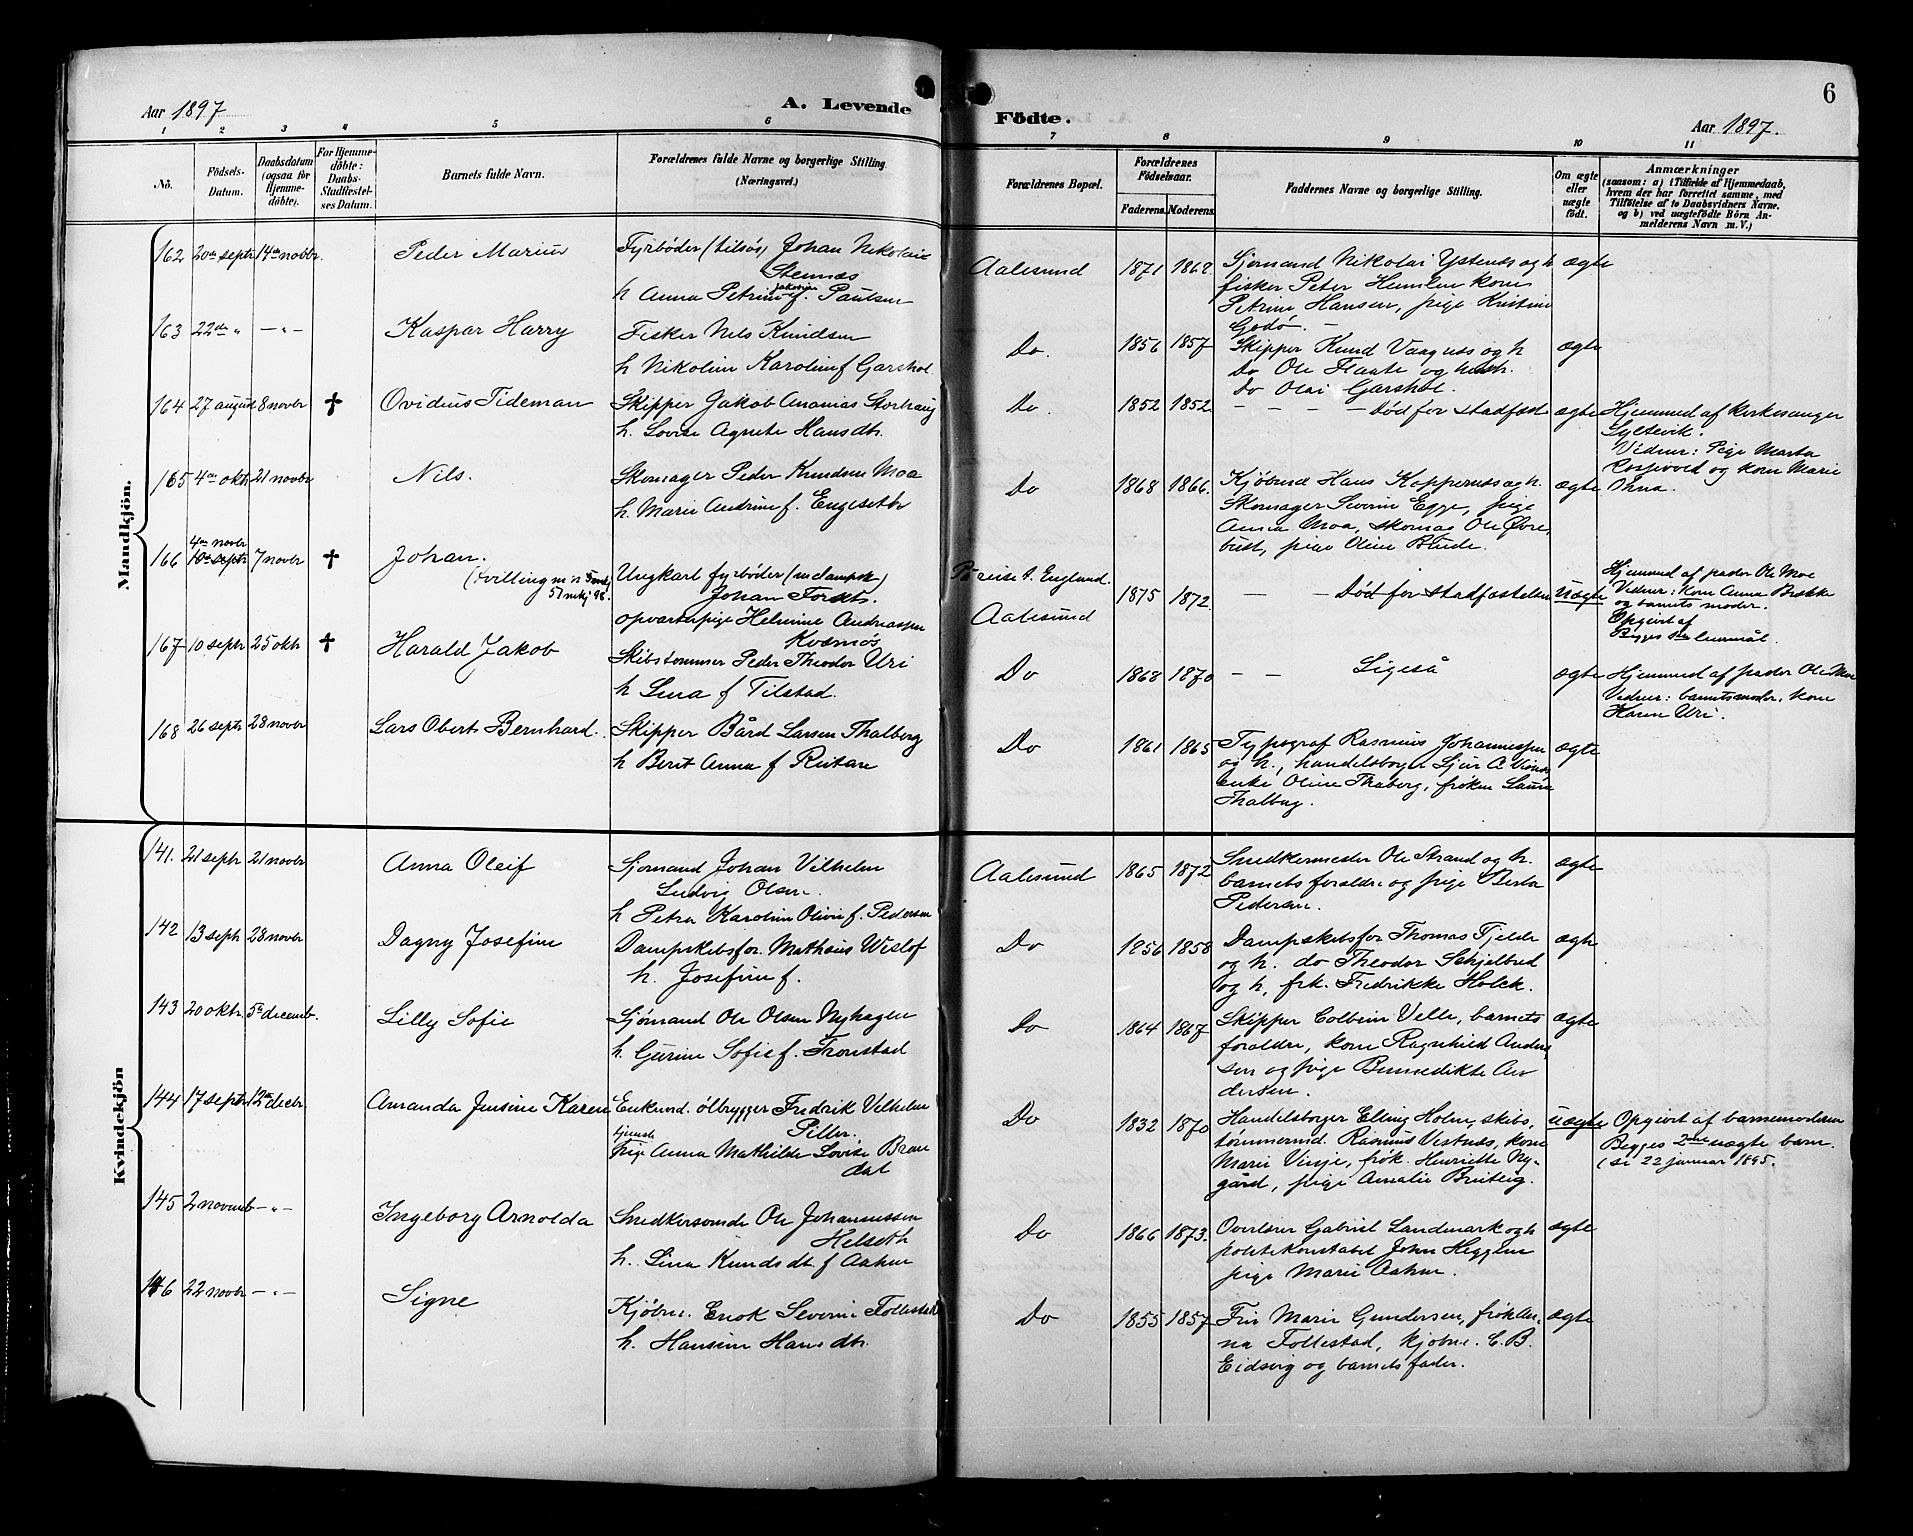 Aar 1897
A. Levende
Födte.
Aar 1897.
6
1 2 3 4 5 6 7 8 9 10 11
Nö.
Födsels-
Datum.
Daabsdatum
(ogsaa for
Hjemme-
döbte).
For Hjemme-
döbte:
Daabs-
Stadfæstel-
ses Datum.
Barnets fulde Navn.
Forældrenes fulde Navne og borgerlige Stilling.
(Næringsvei.)
Forældrenes Bopæl.
Forældrenes
Födselsaar.
Faderens. Moderens.
Faddernes Navne og borgerlige Stilling.
Om ægte
eller
uægte
födt.
Anmærkninger
(saasom: a) i Tilfælde af Hjemmedaab,
hvem der har forrettet samme, med
Tilföielse af to Daabsvidners Navne,
og b) ved uægtefödte Börn An-
melderens Navn m. V.)
Mandkjön.
162 20de septr 14de novbr.
Peder Marius
Fyrbøder (tilsøs) Johan Nikolais
Stennæs
h Anna Petrine Jakobine f. Paulsen
Aalesund 1871 1862
Sjømand Nikolai Ystenes og h
fisker Peter Hemlen kone
Petrine Hansen, pige Kristine
Godø. –
ægte
163 22de " – " –
Kaspar Harry
Fisker Nils Knudsen
h Nikoline Karoline f Garshol
Do. 1856 1857
Skipper Knud Vaagnes og h
Do Ole Flaate og hustr.
Do Olai Garshol.
ægte
164 27 august 8 novbr ✝
Ovidius Tideman
Skipper Jakob Ananias Storhaug
h. Lovise Agnete Hansdtr.
Do. 1852 1852
– – – – Død før stadfæst
ægte
Hjemmed af kirkesanger
Syltevik.
Vidner: Pige Marta
Rossevold og kone Marie
Ohna.
165 4de oktr 21 novbr
Nils.
Skomager Peder Knudsen Moa
h. Marie Andrine f. Engeseth
Do 1868 1866.
Kjøbmd Hans Koppernæs og h.
Skomager Severin Egge, pige
Anna Moa, skomag Ole Øvre
bust, pige Oline Bude.
ægte
166 4de novbr
10de septr 7 novbr ✝
Johan.
(tvilling m n
Ungkarl fyrbøder (m dampsk)
Johan
opvarterpige Helmine Andreassen
Kvamsøs
På reise t. England.
Aalesund
1875 1872
– – Død før stadfæstelsen
uægte
Hjemmed af prædr Ole Moe
Vidner: Kone Anna Brække
og barnets moder.
Opgivt af
Begges 1ste leiermål.
167 10 septr 25 oktr ✝
Harald Jakob
Skibstømmer Peder Theodor Uri
h Lina f Tilstad.
Do 1868 1870
– – Ligeså
ægte
Hjemmed af prædr Ole Moe
Vidner: barnets moder, kone
Karen Uri.
168 26 septr 28 novbr
Lars Obert Bernhard.
Skipper Bård Larsen Thalberg
h Berit Anna f Rutare
Do 1861 1865
Typograf Rasmus Johannessen
og h., handelsborger Sjur A
Enke Oline Thaberg, frøken Laura
Thalberg.
ægte
Kvindekjön
141. 21 septr 21 novbr
Anna Oleif
Sjømand Johan Vilhelm
Ludvig Olsen.
h Petra Karoline Olivie f. Pedersen
Aalesund 1865 1872
Snedkermester Ole Strand og h.
barnets foraldre og pige Berta
Pedersen.
ægte
142 13 septr 28 novbr
Dagny Josefine
Dampskibsfør. Mathæus Wisløf
h. Josefine f.
Do 1856 1858
Dampskibsfør Thomas Fjelde
og h. do Theodor Schjelbred
og h, frk. Fredrikke Holck.
ægte
143 20 oktr. 5te decemb.
Lilly Sofie
Sjømand Ole Olsen Nyhagen
h. Gurine Sofie f. Tronstad
Do 1864 1867
Skipper Colbein Velle, barnets
foraldre, kone Ragnhild Ander
sen og pige Bennedikte An
dersen.
ægte
144 17 septr. 12te decbr.
Amanda Jensine Karen
Enkemd. ølbrygger Fredrik Vilhelm
Piller.
tjenste
pige Anna Mathilde Lovise Brau
dal
Do 1832 1870
Handelsborger Elling Holm, skibs,
tømmermd. Rasmus Vestnæs, kone
Marie Vinje, frøk. Henriette Ny-
gård, pige Amalie Breiteig.
uægte
Opgivt af barnemoderen
Begges 2det uægte barn.
(se 22 januar 1895.
145 2 novemb – " –
Ingeborg Arnolda
Snedkersvende Ole Johannessen
Helseth
h. Lina Knudsdt. f Aahm
Do 1866 1873.
Overlærer Gabriel Landmark og h
politikonstabel John Hegglen
pige Marie Aahm.
ægte
146 22 novbr – " –
Signe
Kjøbm. Enok Severin Follestad
h. Hansine Hansdtr.
Do 1855 1857
Fru Marie Gundersen, frøk An-
na Follestad, kjøbm. C. B.
Eidsvig og barnets fader.
ægte